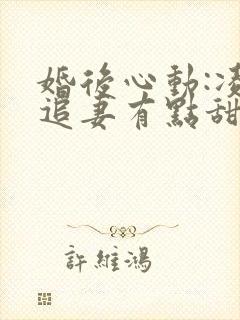 婚後心動:凌
追妻有點甜
許維鴻